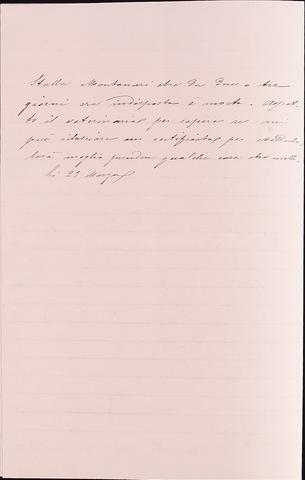 Stalla Montanari che da due o tre
giorni era indisposta è morta. Aspet-
to il veterinario per sapere se mi
può rilasciare un certificato per
sarà meglio prendere qualche cosa che nulla.
li 23 Marzo